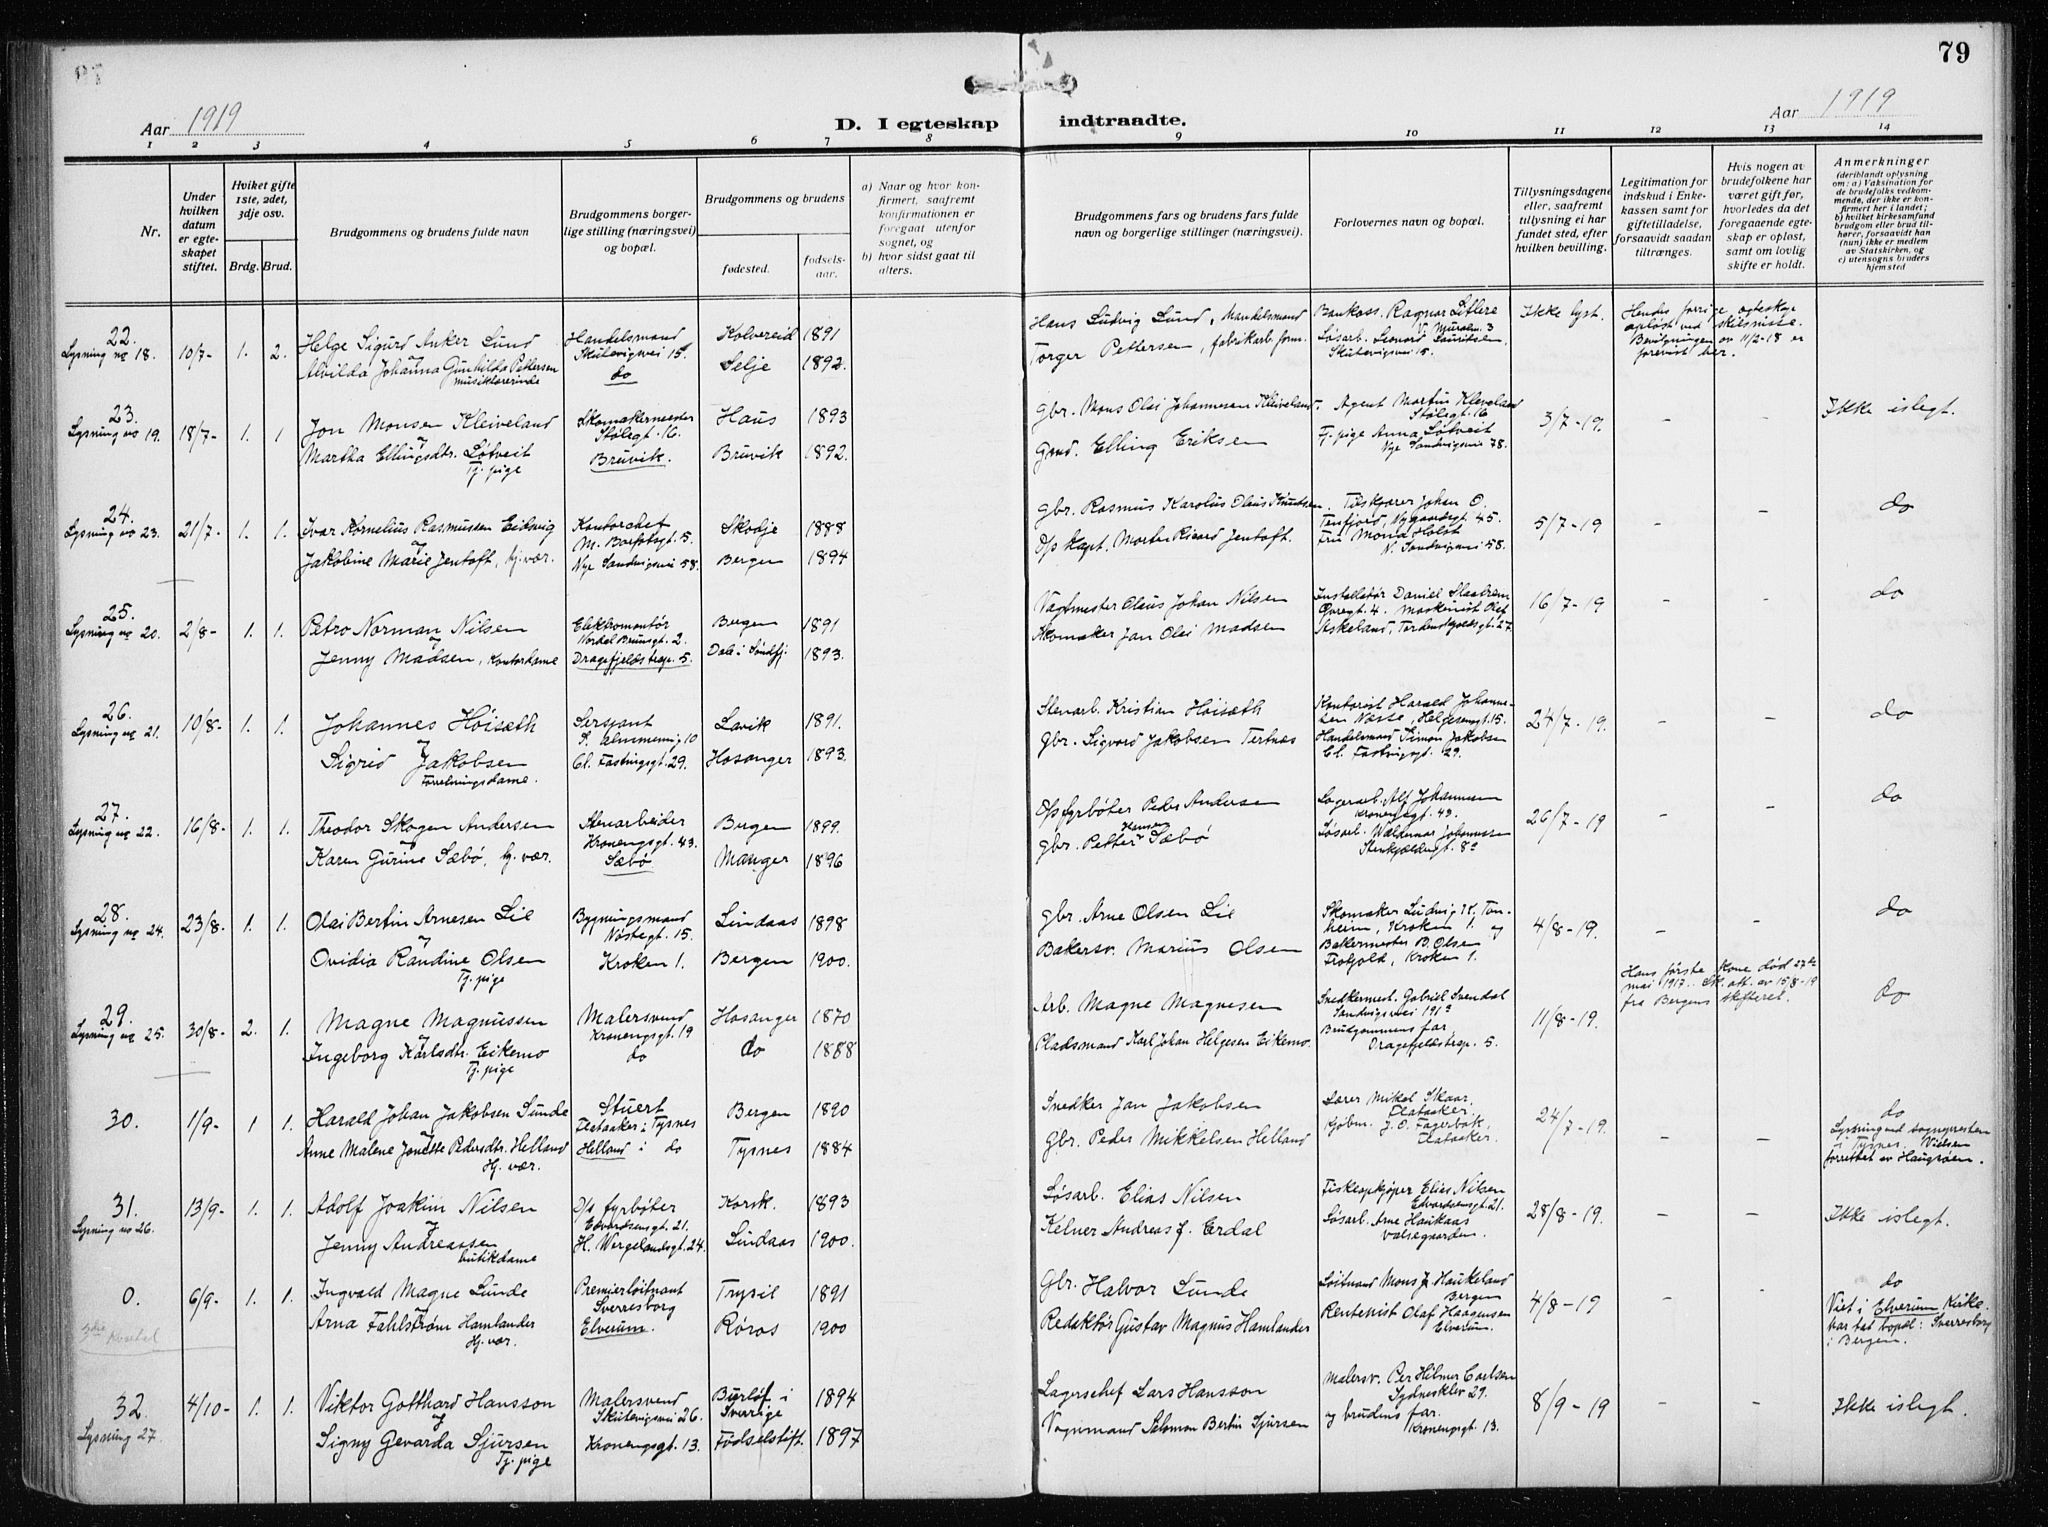 79
Aar 1919
D. I egteskap indtraadte.
Aar 1919
1 2 3 4 5 6 7 8 9 10 11 12 13 14
Nr.
Under hvilken datum er egteskapet stiftet.
Hviket gifte 1ste, 2det, 3dje osv.
Brdg. Brud.
Brudgommens og brudens fulde navn
Brudgommens borgerlige stilling (næringsvei) og bopæl.
Brudgommens og brudens
fødested.
fødselsaar.
a) Naar og hvor konfirmert, saafremt konfirmationen er foregaat utenfor sognet, og
b) hvor sidst gaat til alters.
Brudgommens fars og brudens fars fulde navn og borgerlige stillinger (næringsvei).
Forlovernes navn og bopæl.
Tillysningsdagene eller, saafremt tillysning ei har fundet sted, efter hvilken bevilling.
Legitimation for indskud i Enkekassen samt for giftetilladelse, forsaavidt saadan tiltrænges.
Hvis nogen av brudefolkene har været gift før, hvorledes da det foregaaende egteskap er opløst, samt om lovlig skifte er holdt.
Anmerkninger
(deriblandt oplysning om: a) Vaksination for de brudefolks vedkommende, der ikke er konfirmert her i landet; b) hvilket kirkesamfund brudgom eller brud tilhører, forsaavidt han (hun) ikke er medlem av Statskirken, og c) utensogns bruders hjemsted
22. Lysning no 18. 10/7- 1. 2.
Helge Sigurd Anker Lund Handelsmand Skutevigsvei 15 Kolvereid 1891
og
Alvilda Johanna Gunhilda Pettersen do Selje 1892.
musiklærerinde
Hans Ludvig Lund, Handelsmand
Torger Pettersen, fabrikarb. form.
Bankass. Ragnar Litlere
Løsarb. Leonard Lauritsen
Skutevigsvei 15.
Ikke lyst.
Hendes forrige egteskap
opløst ved skilsmisse.
Bevilgningen av 11/2-18 er
forevist her.
23. Lysning no 19. 18/7- 1. 1
Jon Monsen Kleiveland Skomakermester Stølegt. 16. Haus 1893
og
Martha Ellingsdtr. Løtveit Bruvik. Bruvik 1892.
Tj. pige
Gbr. Mons Olai Johannesen Kleiveland.
Grd. Elling Eriksen
Agent Martin Kleveland
Stølegt. 16
Tj. pige Anna Løtveit
Nye Sandvigsvei 78.
3/7-19. - - Ikke islegt.
24. Lysning no 23. 21/7- 1. 1.
Ivar Kornelius Rasmussen Eidsvig Kontorchef M. Barfotsgt. 15. Skodje 1888
og
Jakobine Marie Jentoft, hj. vær. Nye Sandvigsvei 58. Bergen 1894
Gbr. Rasmus Karolus Olaus Knudsen.
D/s Kapt. Morten Ricard Jentoft.
Tilskjærer Johan O.
Tenfjord, Nygaardsgt. 45.
Fru Mona Holst
N. Sandvigsvei 58.
5/7-19 - - do
25. Lysning no 20. 2/8- 1. 1.
Petro Norman Nilsen Elektromontør Nordal Brunsgt. 2. Bergen 1891
og
Jenny Madsen, Kontordame Dragefjeldstrap. 5. Dale i Søndfj. 1893.
Vagtmester Olaus Johan Nilsen
Skomaker Jan Olai Madsen
Installatør Daniel Staalrem
Øvregt. 4. Maskinist Olaf
Askeland, Tordenskjoldsgt. 27
16/7-19 - - do
26. Lysning no 21. 10/8- 1. 1.
Johannes Høisæth Sersjant S. Almenning 10 Lavik 1891.
og
Sigrid Jakobsen Cl. Fastingsgt. 29. Hosanger 1893.
Forretningsdame.
Stenarb. Kristian Høisæth
Gbr. Sigvard Jakobsen Tertnæs
Kontorist Harald Johannesen
Næsse, Helgesensgt. 15.
Handelsmand Simon Jakobsen
Cl. Fastingsgt. 29.
24/7-19. - - do
27. Lysning no 22. 16/8- 1. 1.
Theodor Skogen Andersen Stenarbeider Kronengsgt. 43. Bergen 1899.
og
Karen Gurine Sæbø, hj. vær. Sæbø Manger 1896
D/s fyrbøter Peder Andersen
Gbr. Petter Hansen Sæbø
Lagerarb. Alf Johannesen
Kronengsgt. 43.
Løsarb. Waldemar Johannessen
Stenkjeldergt. 8a
26/7-19 - - do
28. Lysning no 24. 23/8- 1. 1.
Olai Bertin Arnesen Lie Bygningsmand Nøstegt. 15. Lindaas 1898
og
Ovidia Randine Olsen Kroken 1. Bergen 1900.
Tj. pige
Gbr. Arne Olsen Lie
Bakersv. Marius Olsen
Skomaker Ludvig K. Tonheim,
Kroken 1. og
Bakermester B. Olsen
Frotjold, Kroken 1.
4/8-19. - - do
29. Lysning no 25. 30/8- 2. 1.
Magne Magnussen Malersvend Kronengsgt. 19 Hosanger 1870
og
Ingeborg Karlsdtr. Eikemo do do 1888
Tj. pige
Arb. Magne Magnesen
Pladsmand Karl Johan Helgesen Eikemo.
Snedkermest. Gabriel Svendal
Sandvigsvei 191a
Brudgommens far,
Dragefjeldstrap. 5.
11/8-19.
Hans første kone død 27de
mai 1917. Sk. att. av 15/8-19
fra Bergens skifteret.
do
30. 1/9- 1 1.
Harald Johan Jakobsen Sunde Stuert Flataaker i Tysnes Bergen 1890
og
Anne Malene Jonette Pedersdtr. Helland Helland i do Tysnes 1884
Hj. vær.
Snedker Jan Jakobsen
Gbr. Peder Mikkelsen Helland
Lærer Mikel Skaar,
Flataaker.
Kjøbm. J. O. Fagerbak,
Flataaker.
24/7-19. - -
do
Lysning ved sognepresten
i Tysnes. Vielsen
forrettet av Haugsøen.
31. Lysning no 26. 13/9- 1. 1.
Adolf Joakim Nilsen D/s fyrbøter Edvardsensgt. 21. Korsk. 1893
og
Jenny Andreassen H. Wergelandsgt. 24. Lindaas 1900.
butikdame
Løsarb. Elias Nilsen
Kelner Andreas J. Erdal
Fiskeopkjøper Elias Nilsen
Edvardsensgt. 21.
Løsarb. Arne Haukaas
Valsegaarden.
28/8-19. - - Ikke islegt.
0. 6/9- 1. 1.
Ingvald Magne Lunde Premierløitnant Sverresborg Trysil 1891
og
Arna Fahlstrøm Hamlander Elverum. Røros 1900
Hj. vær.
3die Kvartal
Gbr. Halvor Lunde
Redaktør Gustav Magnus Hamlander
Løitnand Mons J. Haukeland
Bergen
Rentenist Olaf Haagensen
Elverum.
4/8-19 - -
do
Viet i Elverum Kirke.
Har tat bopæl: Sverresborg
i Bergen.
32. Lysning 27. 4/10- 1. 1.
Viktor Gotthard Hansson Malersvend Skutevigsvei 26. Burløf i Sverrige 1894
og
Signy Gevarda Sjursen Kronengsgt. 13. Fødselstift. 1897
Tj. pige
Lagerschef Lars Hansson
Vognmand Salomon Bertin Sjursen
Malersv. Per Hilmer Carlsen
Sydnesklev 29.
og brudens far.
Kronengsgt. 13.
8/9-19 - - Ikke islegt.